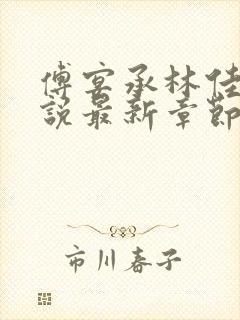 傅宴承林佳
說最新章節
市川春子